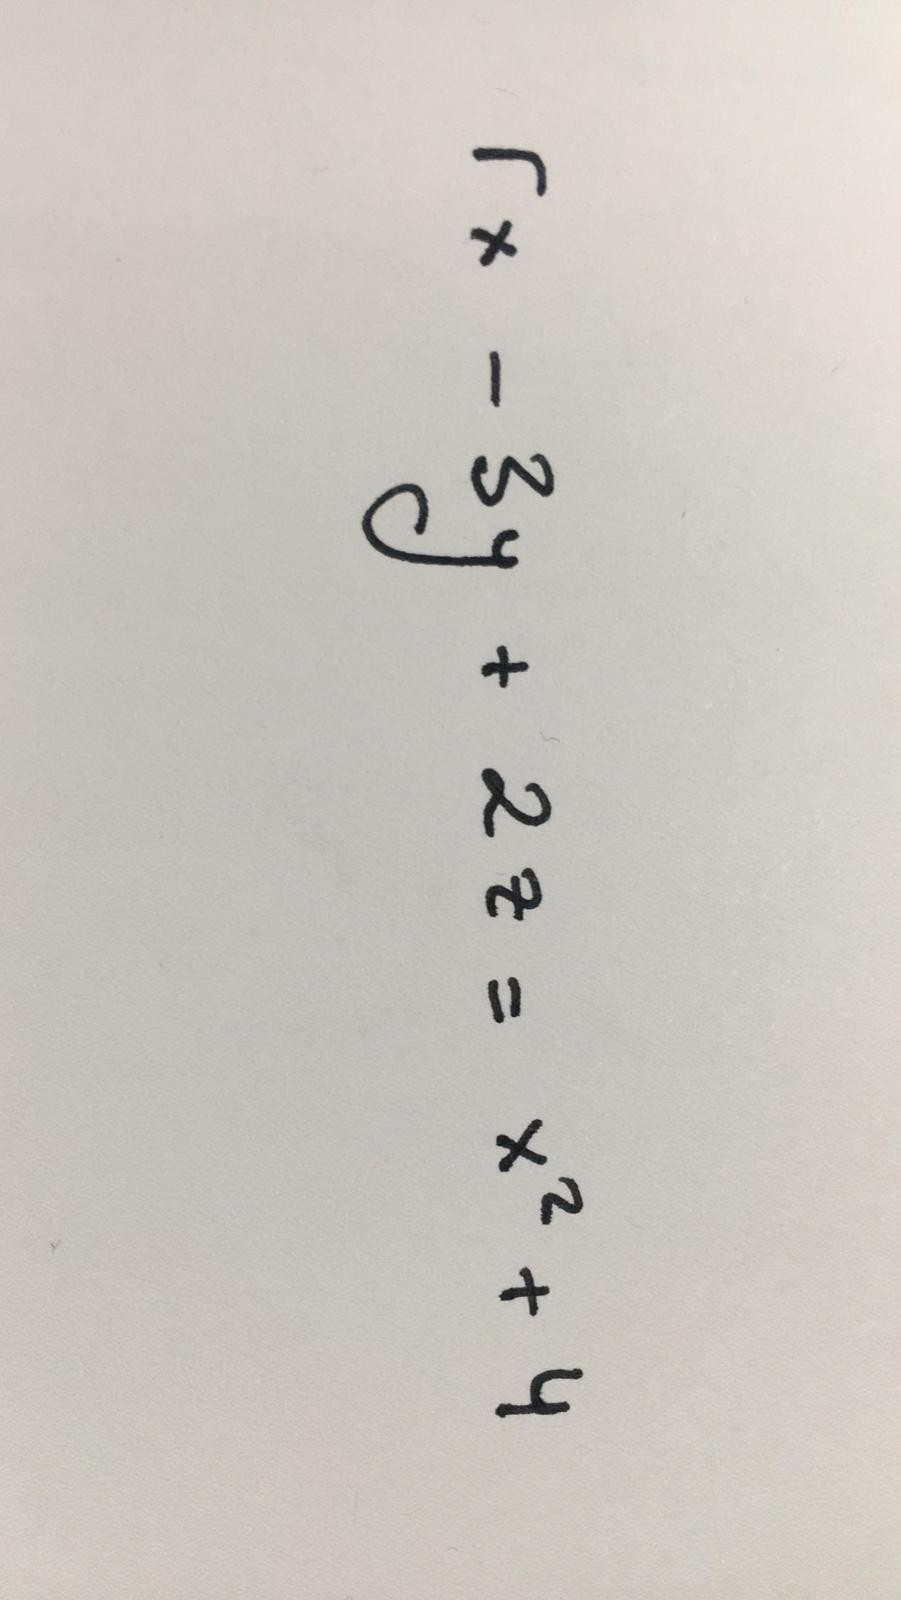 rx - 3y + 2z = x² + 4